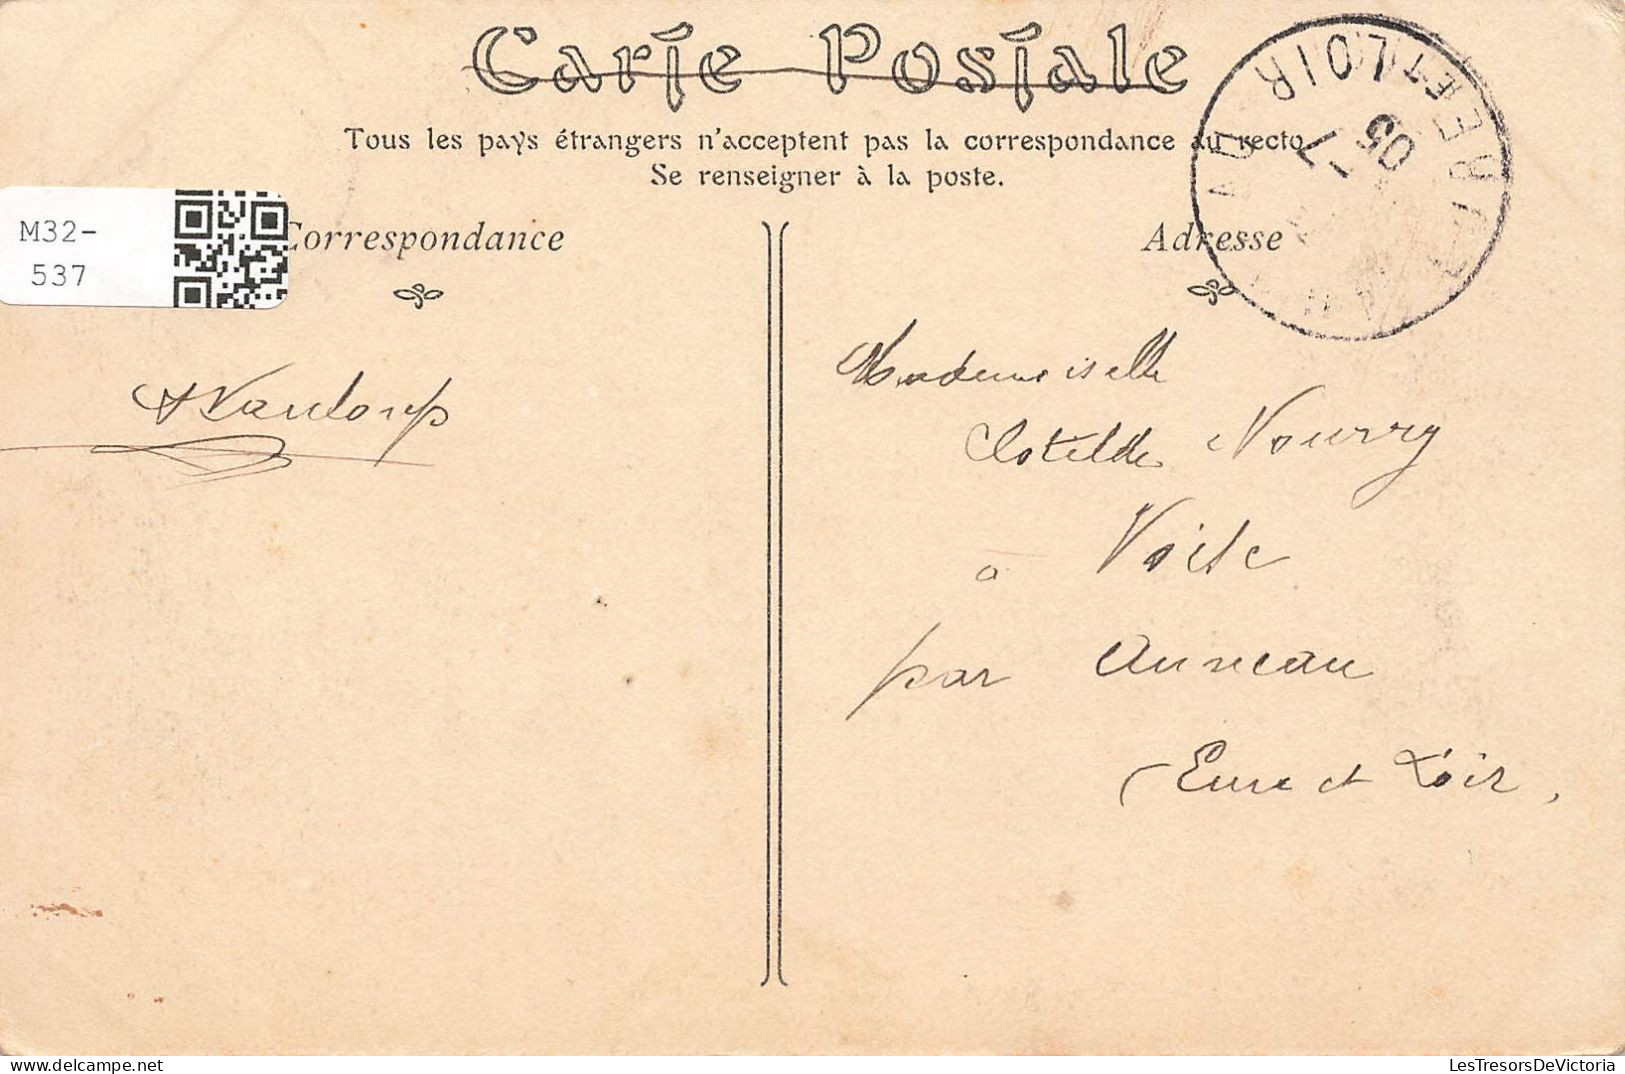 Carte Postale
Tous les pays étrangers n'acceptent pas la correspondance au recto
Se renseigner à la poste.
M32-
537
Correspondance
Adresse
ET LOIR
7
05
Mademoiselle
Clotilde Nourry
à Voise
par Auneau
(Eure et Loir,
LesTresorsDeVictoria